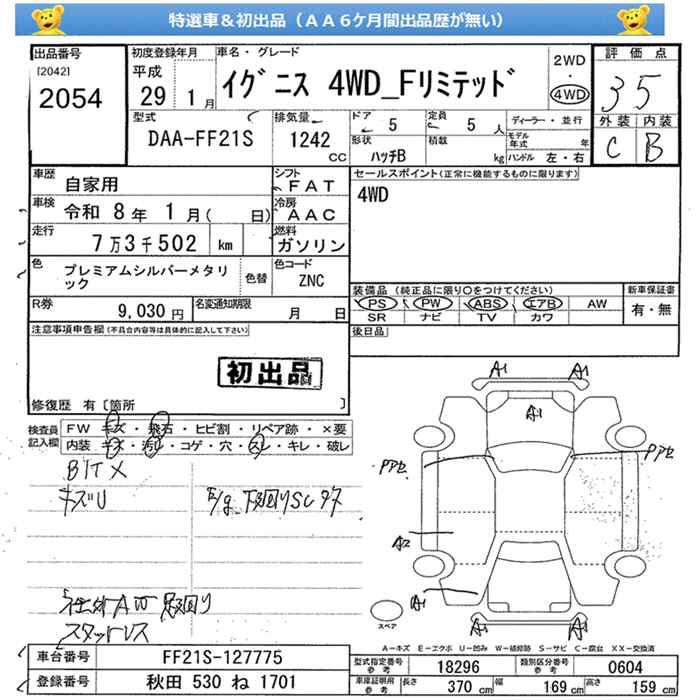 特選車＆初出品（ＡＡ６ケ月間出品歴が無い）
出品番号
[2042]
2054
初度登録年月
平成
29 年 1 月
車名・グレード
イグニス 4WD_Fリミテッド
2WD
・
4WD
評価点
3.5
外装 内装
C B
型式
DAA-FF21S
排気量
1242
CC
ドア
5
定員
5 人
形状
ハッチB
積載
kg
ディーラー・並行
モデル年式 年
ハンドル 左・右
車歴
自家用
シフト
FAT
車検
令和 8年 1月( 日)
冷房
AAC
走行
7万3千502 km
燃料
ガソリン
色
プレミアムシルバーメタリック
色替
色コード
ZNC
R券
9,030 円
名変通知期限
月 日
セールスポイント(正常に機能するものに限ります)
4WD
装備品(純正品に限り○をつけてください)
PS PW ABS エアB AW
SR ナビ TV カワ
新車保証書
有・無
後日品
注意事項申告欄(不具合内容等は具体的に記入して下さい)
初出品
修復歴 有〔箇所 〕
検査員記入欄
FW キズ・飛石・ヒビ割・リペア跡・×要
内装 キズ・汚れ・コゲ・穴・スレ・キレ・破レ
キズU
下回りSCサビ
スタットレス
A1 A1
A1
A2
A1
A1
スペア
A－キズ E－エクボ U－凹み W－補修跡 S－サビ C－腐食 XX－交換済
車台番号
FF21S-127775
登録番号
秋田 530 ね 1701
型式指定番号
参考
18296
類別区分番号
参考
0604
車庫証明用
参考
長さ 370 cm 幅 169 cm 高さ 159 cm